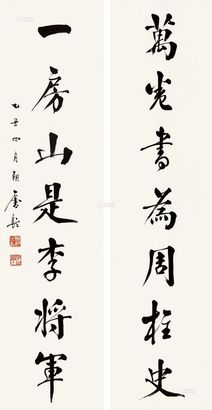 萬卷書為周柱史
一房山是李將軍
乙丑四月朔唐駝